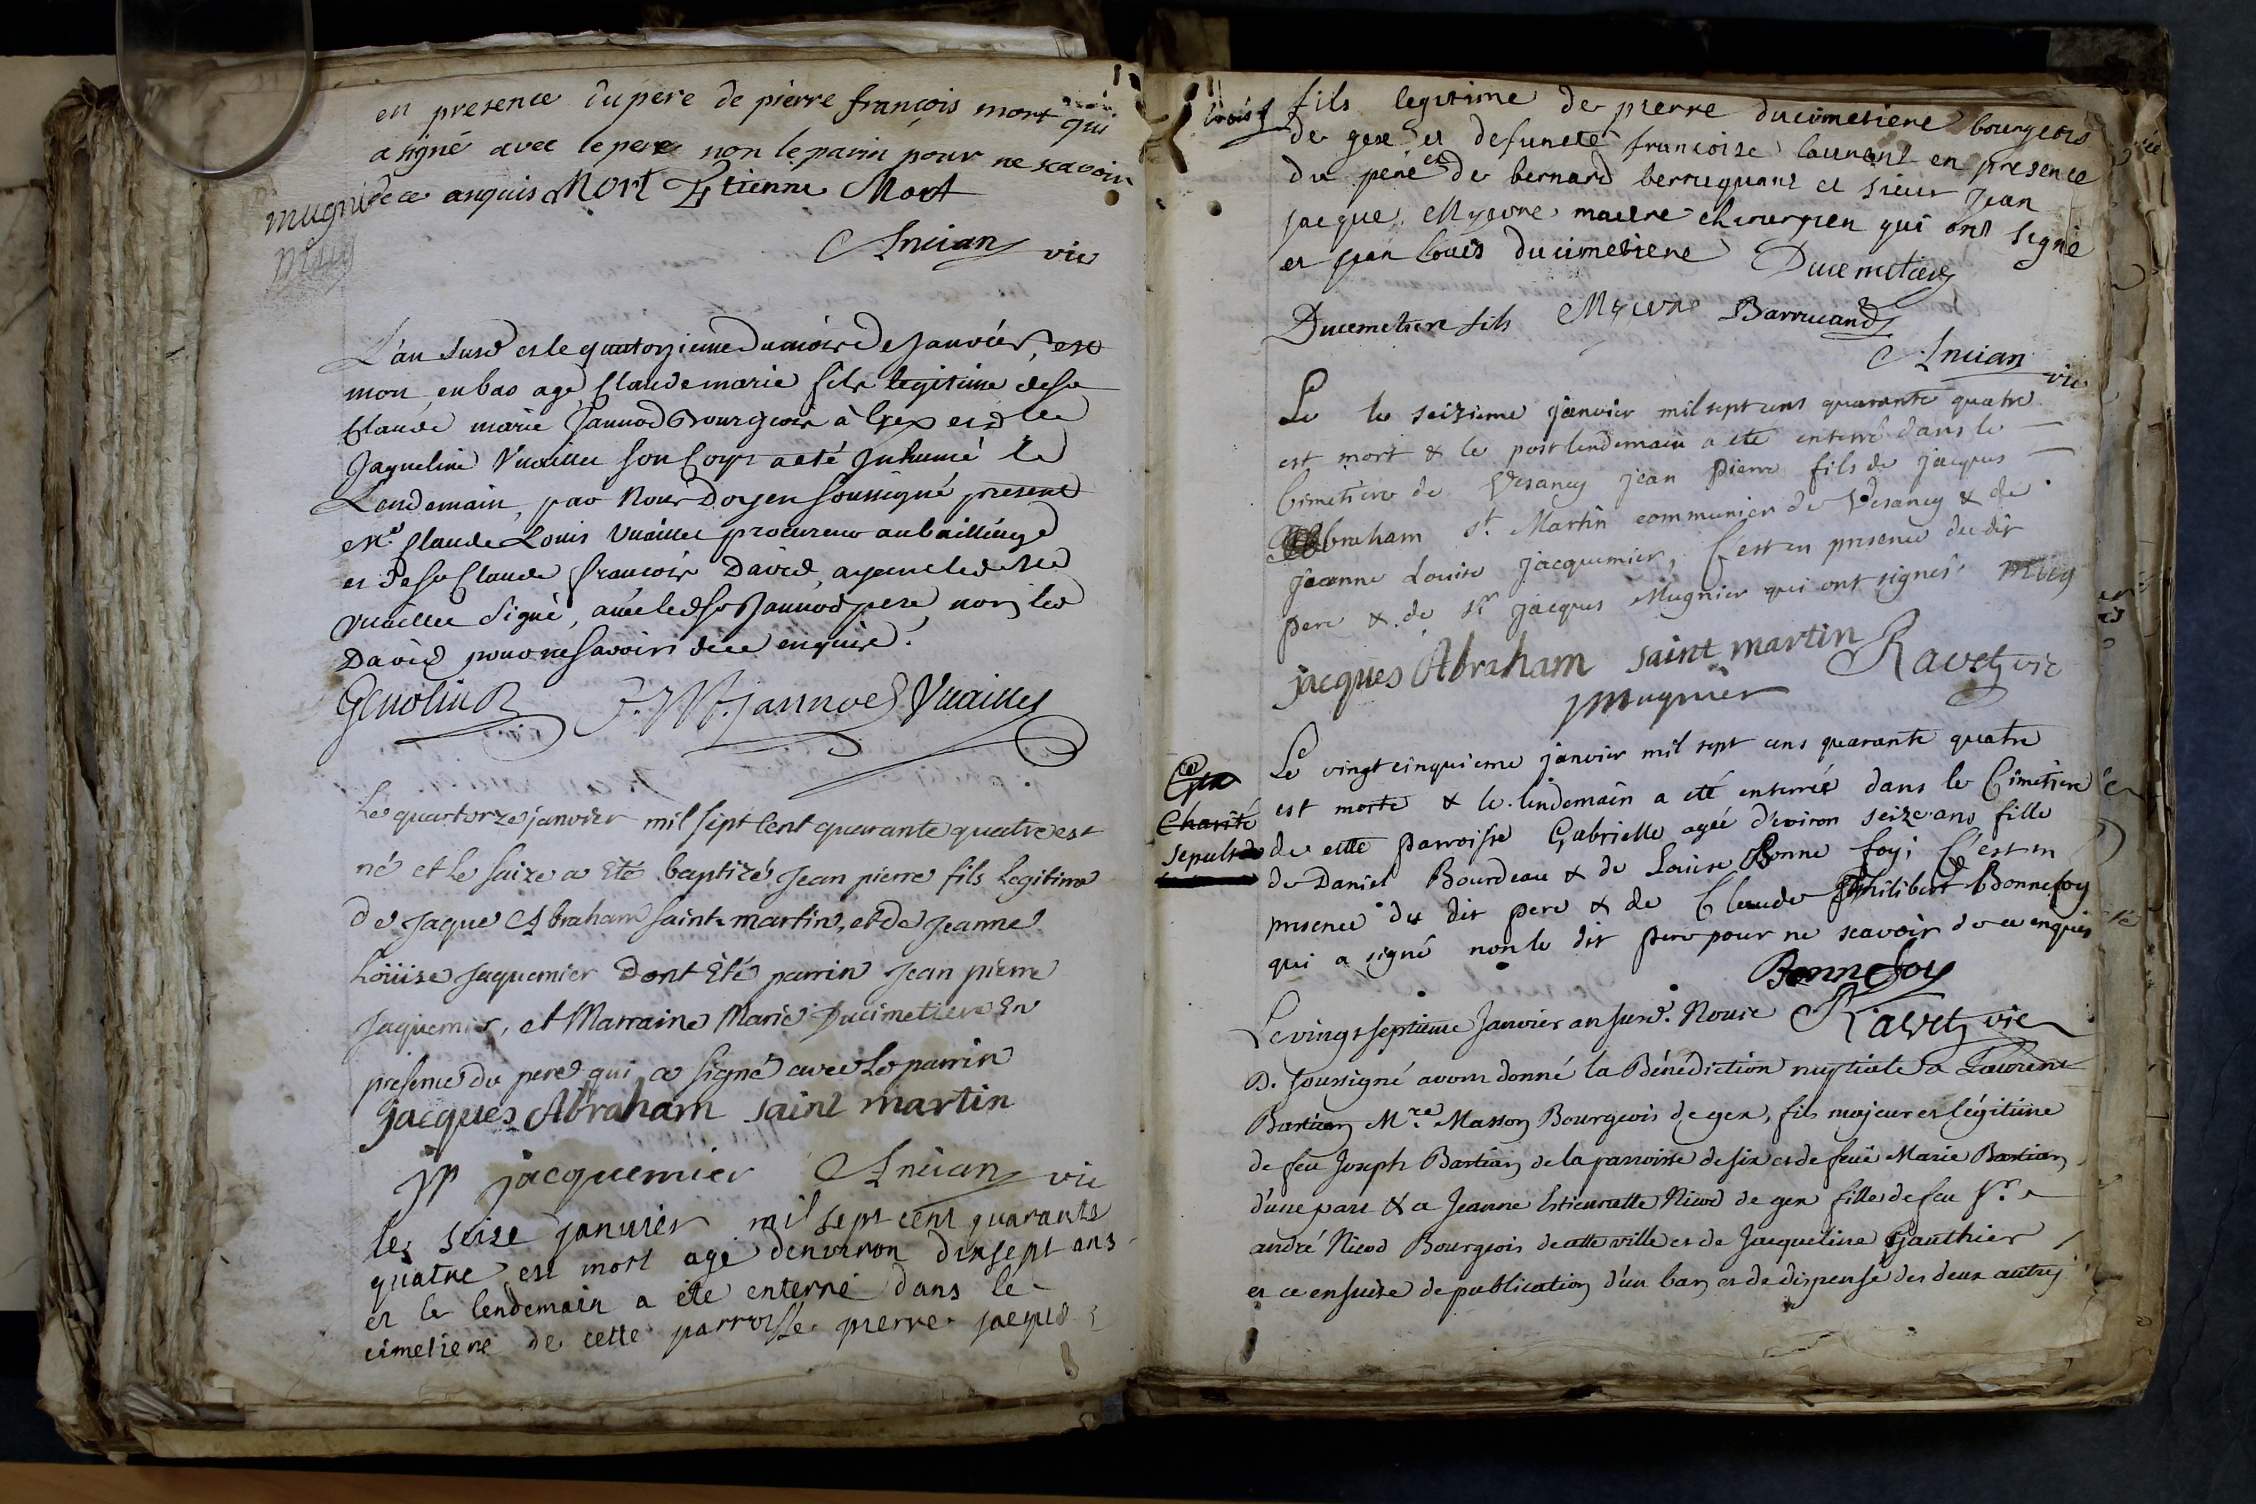 en presence du pere de pierre françois mort qui
a signé avec le pere non le parin pour ne scavoir
de ce anquis Mort Etienne Mort
mugni
Ancian vic
L'an susd et le quatorzieme du mois de Janvier, est
mort en bas age Claude marie fils legitime de sr
Claude marie Jannod Bourgeois à Gex et de
Jaqueline Vuaillet son Corps a eté Inhumé le
Lendemain, par Nous Doyen soussigné present
Me. Claude Louis Vuaillet procureur au bailliage
et de sr Claude François David, ayant led Me
Vuaillet signé, avec led sr Jannod pere, non led
David pour ne savoir de ce enquis.
Genolin D. C. M. Jannod Vuaillet
Le quartorze janvier mil sept cent quarante quatre est
né et le saize a Eté baptizé Jean pierre fils Legitime
de Jaque Abraham saint martin, et de Jeanne
Loüise Jaquemier Dont Eté parrin Jean pierre
Jaquemier, et Marraine Marie Ducimetiere En
presence du pere qui a signé avec Le parrin
jacques Abraham saint martin
jp jacquemier Ancian vic
les seize janvier mil sept cent quarante
quatre est mort agé denviron dixsept ans
et le lendemain a été enterré dans le
cimetiere de cette parroisse pierre jaque
fils legitime de pierre ducimetiere bourgeois
de gex et defuncte francoise laurent en presence
du pere et de bernard berruquant et sieur Jean
jacque Myevre maitre chirurgien qui ont signé
et jean louis ducimetiere Ducemetiere
Ducemetiere fils Myevre Barrucand
Ancian vic
Le le seizieme janvier mil sept cens quarante quatre
est mort & le post lendemain a eté enterré dans le
Cimetiere de Vesancy jean Pierre fils de jacques
Abraham st. Martin communier de Vesancy & de
jeanne Louise Jacquemier, C'est en presence du dit
pere & de sr jacques Mugnier qui ont signés
jacques Abraham saint martin Ravet vic
jmugnier
Gex
Charité
sepult
Le vingtcinquieme janvier mil sept cens quarante quatre
est morte & le lendemain a eté enterrée dans le Cimetiere
de cette Parroisse Gabrielle agée d'eviron seize ans fille
de Daniel Bourdeau & de Louise Bonne foy; C'est en
presence du dit pere & de Claude Philibert Bonnefoy
qui a signé non le dit Pere pour ne scavoir de ce enquis
Bonnefoy
Le vingt septieme Janvier an susd. Nous Ravet vic
D. soussigné avons donné la Bénédiction nuptiale a Laurent
Bastian Mre Masson Bourgeois de gex, fils majeur et légitime
de feu Joseph Bastian de la parroisse de six et de feuë Marie Bastian
d'une part & a Jeanne Estiennette Nicod de gex fille de feu sr
andré Nicod Bourgeois de cette ville et de Jacqueline Gauthier
et ce ensuite de publication d'un ban et de dispense des deux autres